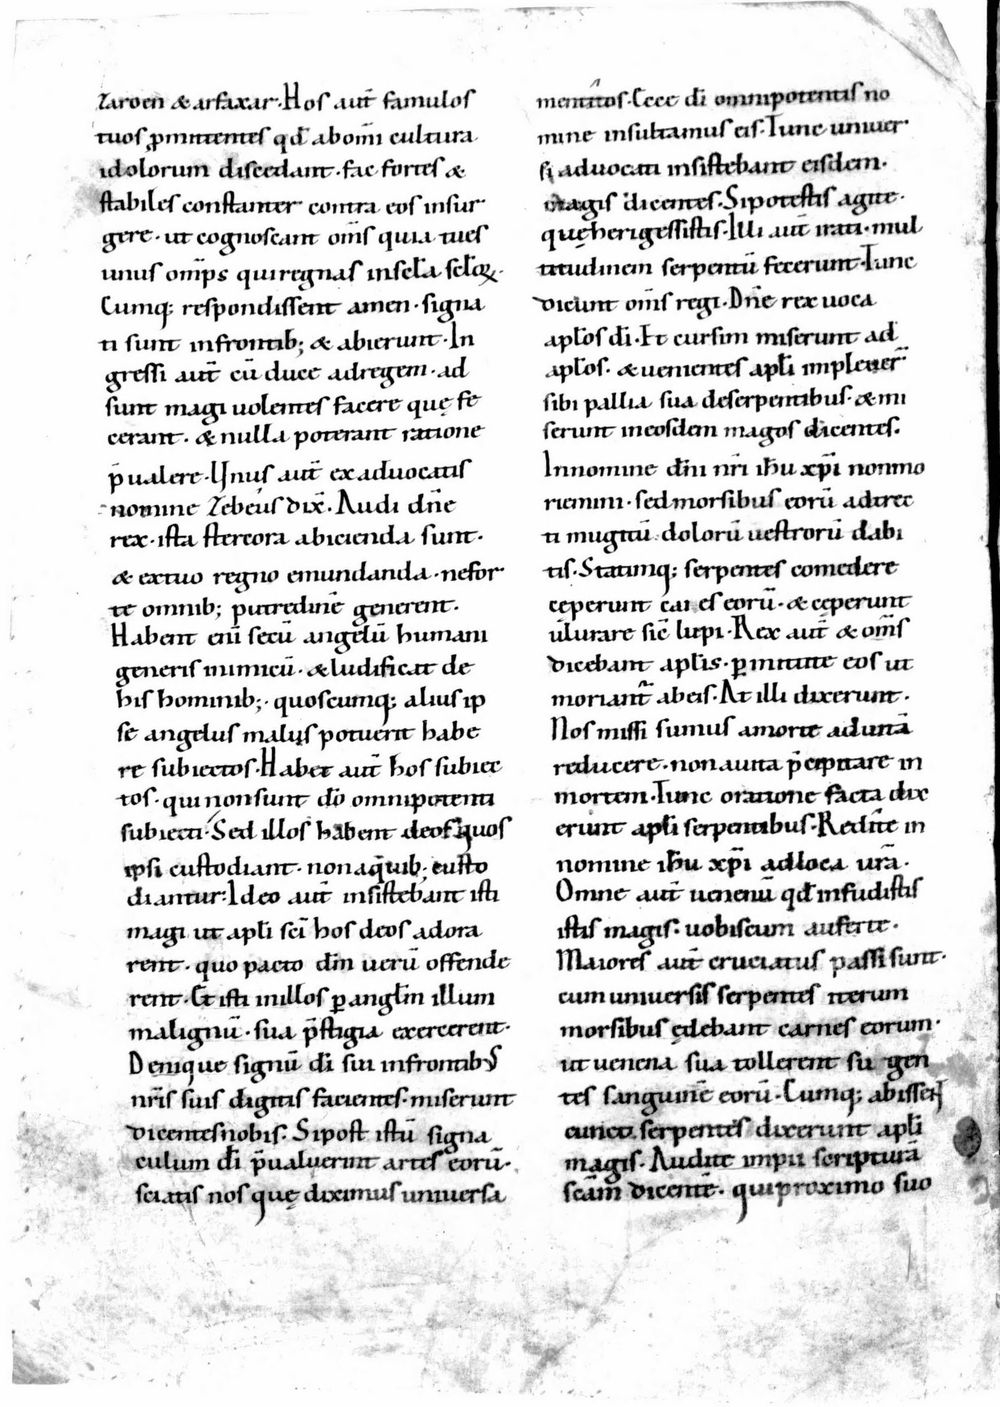 Zaroen & arfaxar· Hos aut̄ famulos
tuos p̱mittentes qđ ab om̄i cultura
idolorum discedant· fac fortes &
stabiles constanter contra eos insur
gere· ut cognoscant om̄s quia tu es
unus om̄ps qui regnas in scl̄a scl̄oꝝ·
Cumq; respondissent amen· signa
ti sunt in frontib; & abierunt· In
gressi aut̄ cū duce ad regem· ad
sunt magi uolentes facere quę fe
cerant· & nulla poterant ratione
p̄ualere· Unus aut̄ ex aduocatis
nomine Zebeus dix̄· Audi dn̄e
rex· ista stercora abicienda sunt·
& ex tuo regno emundanda· ne for
te omnib; putredinē generent·
Habent enī secū angelū humani
generis inimicū· & ludificat de
his hominib;· quoscumq; alius ip
se angelus malus potuerit habe
re subiectos· Habet aut̄ hos subiec
tos· qui non sunt dō omnipotenti
subiecti· Sed illos habent deos quos
ipsi custodiant· non a q̄uib; custo
diantur· Ideo aut̄ insistebant isti
magi ut apl̄i sc̄i hos deos adora
rent· quo pacto dm̄ uerū offende
rent· Et isti in illos ꝑ angl̄m illum
malignū· sua p̄stigia exercerent·
Denique signū dī sui in frontibꝰ
nr̄is suis digitis facientes· miserunt
dicentes nobis· Si post istū signa
culum dī p̄ualuerint artes eorū·
sciatis nos quę diximus uniuersa
mentitos· Ecce dī omnipotentis no
mine insultamus eis· Tunc uniuer
si aduocati insistebant eisdem·
magis dicentes· Si potestis agite·
quę heri gessistis· Illi aut̄ irati· mul
titudinem serpentū fecerunt· Tunc
dicunt om̄s regi· Dn̄e rex uoca
apl̄os dī· Et cursim miserunt ad
apl̄os· & uenientes apl̄i impleuer̄
sibi pallia sua de serpentibus· & mi
serunt in eosdem magos dicentes·
In nomine dn̄i nr̄i ihū xpī non mo
riemini· sed morsibus eorū adtrec
ti mugitū dolorū uestrorū dabi
tis· Statimq; serpentes comedere
cęperunt car es eorū· & cęperunt
ululare sic̄ lupi· Rex aut̄ & om̄s
dicebant apl̄is· ꝑmittite eos ut
moriant̄ ab eis· At illi dixerunt·
Nos missi sumus a morte ad uitā
reducere· non a uita p̄cipitare in
mortem· Tunc oratione facta dix
erunt apl̄i serpentibus· Redite in
nomine ihū xpī ad loca urā·
Omne aut̄ uenenū qđ infudistis
istis magis· uobiscum auferte·
Maiores aut̄ cruciatus passi sunt·
cum uniuersis serpentes iterum
morsibus ędebant carnes eorum·
ut uenena sua tollerent su gen
tes sanguinē eorū· Cumq; abissen
serpentes dixerunt apl̄i
magis· Audite impii scripturā
scām dicentē· qui proximo suo